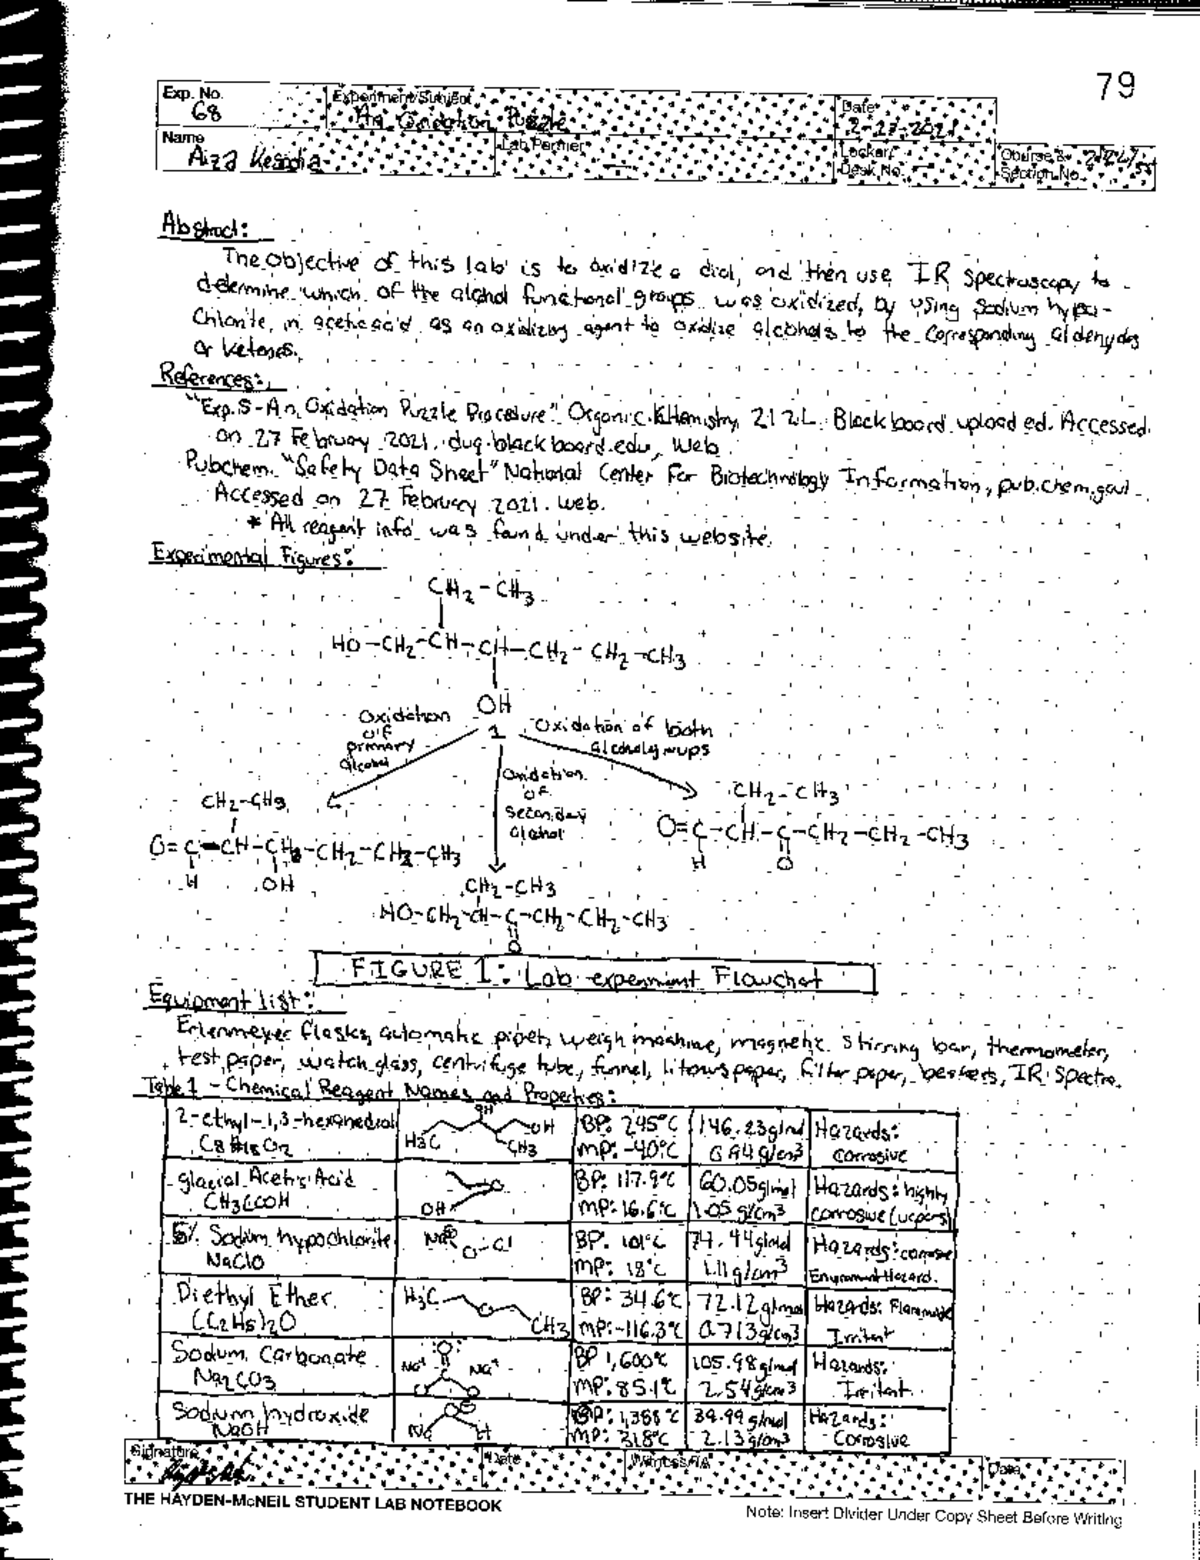 79
Exp. No.
68
Experiment/Subject
An Oxidation Puzzle
Date
2-27-2021
Name
Aiza Kesadia
Lab Partner
—
Locker/
Desk No.
Course &
Section No.
Abstract:
The objective of this lab is to oxidize a diol, and then use IR spectroscopy to
determine which of the alcohol functional groups was oxidized, by using sodium hypo-
chlorite in acetic acid as an oxidizing agent to oxidize alcohols to the corresponding aldehydes
or ketones.
References:
"Exp.5-An Oxidation Puzzle Procedure" Organic Chemistry 212L. Blackboard uploaded. Accessed
on 27 February 2021. duq.blackboard.edu, Web.
Pubchem. "Safety Data Sheet" National Center For Biotechnology Information, pub.chem.gov.
Accessed on 27 February 2021. web.
* All reagent info was found under this website.
Experimental Figures:
CH2-CH3
HO-CH2-CH-CH-CH2-CH2-CH3
OH
1
Oxidation
of
primary
alcohol
Oxidation
of
secondary
alcohol
Oxidation of both
alcohol groups
CH2-CH3
O=C-CH-CH-CH2-CH2-CH3
H OH
CH2-CH3
HO-CH2-CH-C-CH2-CH2-CH3
O
CH2-CH3
O=C-CH-C-CH2-CH2-CH3
H O
FIGURE 1: Lab experiment Flowchart
Equipment list:
Erlenmeyer flasks, automatic pipet, weigh machine, magnetic stirring bar, thermometer,
test paper, watch glass, centrifuge tube, funnel, litmus paper, filter paper, beakers, IR Spectro.
Table 1 - Chemical Reagent Names and Properties:
2-ethyl-1,3-hexanediol
C8H18O2
OH
OH
H3C
CH3
BP: 245°C
MP: -40°C
146.23g/mol
0.94g/cm3
Hazards:
corrosive
glacial Acetic Acid
CH3COOH
O
OH
BP: 117.9°C
MP: 16.6°C
60.05g/mol
1.05 g/cm3
Hazards: highly
corrosive (vapors)
5% Sodium hypochlorite
NaClO
Na O-Cl
BP: 101°C
MP: 18°C
74.44g/mol
1.11g/cm3
Hazards: corrosive
Environment Hazard.
Diethyl Ether
(C2H5)2O
H3C
O
CH3
BP: 34.6°C
MP: -116.3°C
72.12g/mol
0.713g/cm3
Hazards: Flammable
Irritant
Sodium Carbonate
Na2CO3
O
Na+ Na+
O O
BP 1,600°C
MP: 851°C
105.98g/mol
2.54g/cm3
Hazards:
Irritant
Sodium hydroxide
NaOH
O
Na H
BP: 1,388°C
MP: 318°C
39.99g/mol
2.13g/cm3
Hazards:
Corrosive
Signature
Date
Witness/TA
Date
THE HAYDEN-McNEIL STUDENT LAB NOTEBOOK
Note: Insert Divider Under Copy Sheet Before Writing